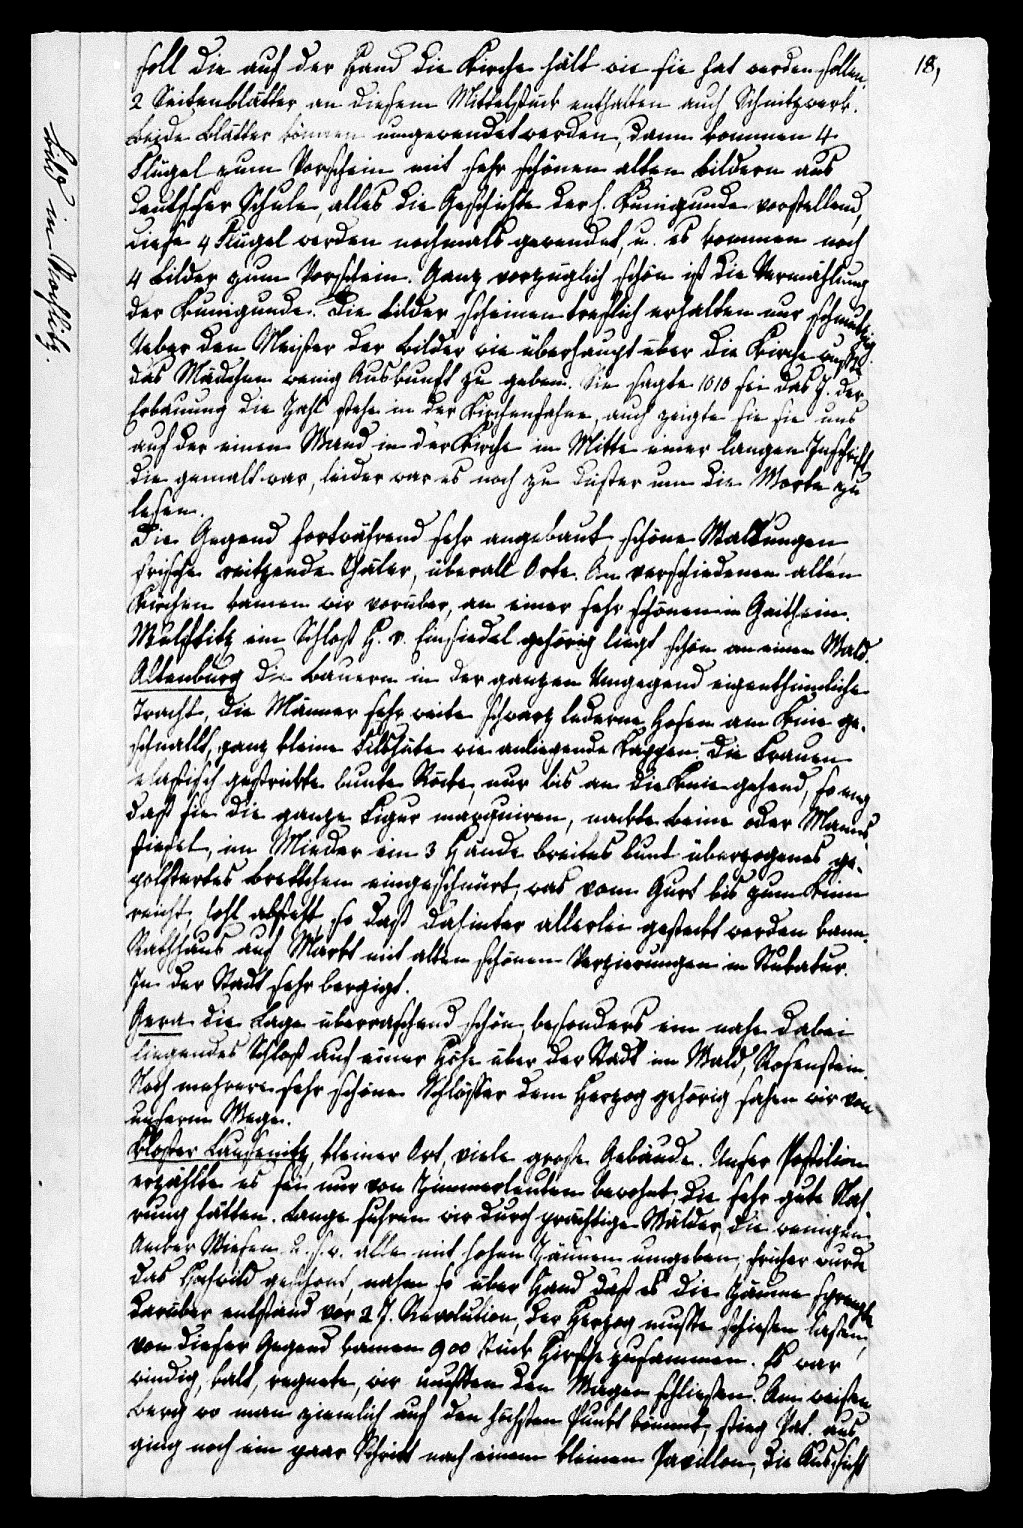 18,
soll die auf der Hand die Kirche hält wie sie hat werden sollen.
2 Seitenblätter an diesem Mittelstück enthalten auch Schnitzwerk.
Beide Blätter können umgewendet werden, dann kommen 4
Flügel zum Vorschein mit sehr schönen alten Bildern aus
deutscher Schule, alles die Geschichte der h. Kunigunde vorstellend,
diese 4 Flügel werden nochmals gewendet, u. es kommen noch
4 Bilder zum Vorschein. Ganz vorzüglich schön ist die Vermählung
der Kunigunde. Die Bilder scheinen treflich erhalten nur schmutzig.
Ueber den Meister der Bilder wie überhaupt über die Kirche wußte
das Mädchen wenig Auskunft zu geben. Sie sagte 1010 sei das J. der
Erbauung die Zahl stehe in der Kirchenfahne, auch zeigte sie sie uns
auf der einen Wand in der Kirche in Mitte einer langen Inschrift
die gemalt war, leider war es noch zu düster um die Worte zu
lesen.
Die Gegend fortwährend sehr angebaut, schöne Waldungen,
frische reitzende Thäler, überall Orte. An verschiedenen alten
Kirchen kamen wir vorüber, an einer sehr schönen in Gaithain.
ein Schloß H. v. Einsiedel gehörig liegt schön an einem Wald.
Altenburg die Bauern in der ganzen Umgegend eigenthümliche
Tracht, die Männer sehr weite schwarz lederne Hosen am Knie ge-
schnallt, ganz kleine Filzhüte wie anliegende Kappen. Die Frauen
elastisch gestrickte bunte Röcke, nur bis an die Knie gehend, so eng
daß sie die ganze Figur marquiren, nackte Beine oder Manns-
stiefel, im Mieder ein 3 Hände breites bunt überzogenes ge-
polstertes Brettchen eingeschnürt, was vom Gurt bis zum Kinn
reicht, hohl absteht, so daß dahinter allerlei gesteckt werden kann.
Rathhaus auf Markt mit alten schönen Verzierungen in Stukatur.
In der Stadt sehr bergigt.
Gera die Lage überraschend schön, besonders ein nahe dabei
liegendes Schloß auf einer Höhe über der Stadt im Wald,
Noch mehrere sehr schöne Schlösser dem Herzog gehörig sahen wir von
unserm Wege.
Kloster Lausenitz, kleiner Ort, viele große Gebäude. Unser Postilion
erzählte es sei nur von Zimmerleuten bewohnt, die sehr gute Nah-
rung hätten. Lange fuhren wir durch prächtige Wälder, die wenigen
Aecker Wiesen waren alle mit hohen Zäunen umgeben, früher wurde
das Hochwild geschont, nahm so über Hand daß es die Zäune sprengte
darüber entstand vor 2 J. Revolution, der Herzog mußte schießen lassen,
von dieser Gegend kamen 900 Stück Hirsche zusammen. Es war
windig, kalt, regnete, wir mußten den Wagen schließen. Am weißen
Berg wo man ziemlich auf den höchsten Punkt kömmt, stieg Pat. aus
ging noch ein paar Schritt nach einem kleinen Pavillon, die Aussicht
Bild in